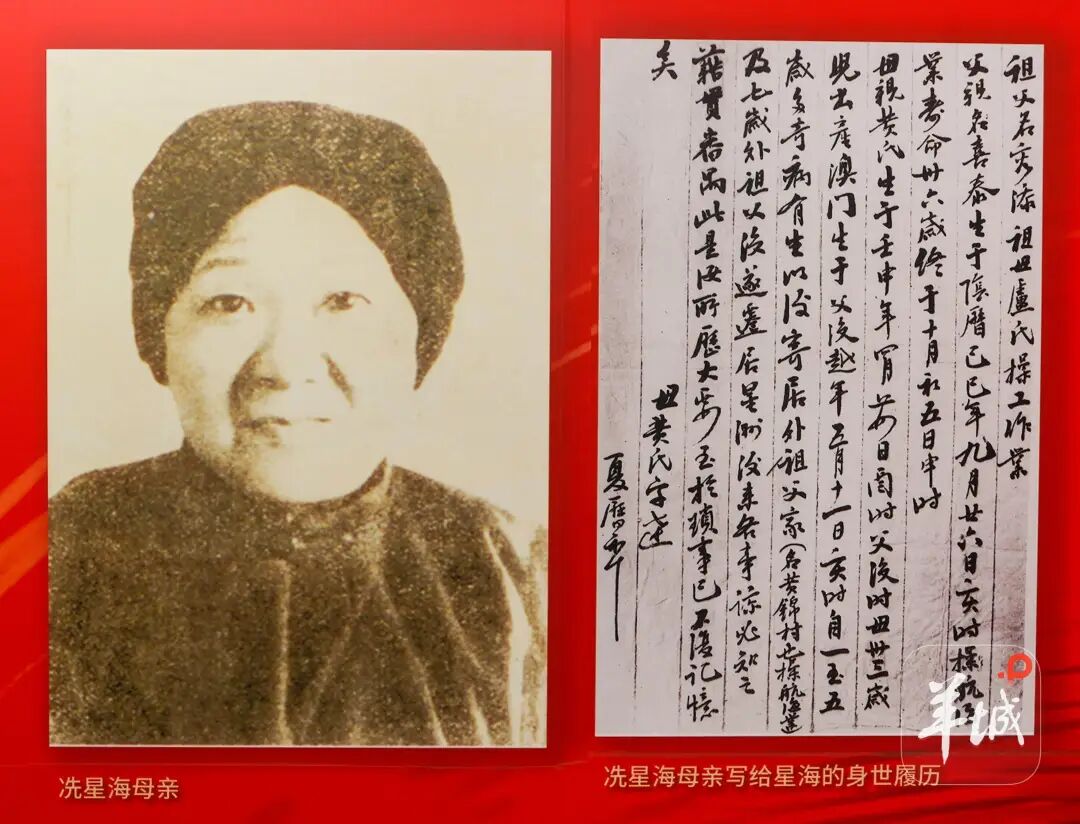 祖父名添 祖母盧氏操工作業
父親名喜泰生于陰曆己巳年九月廿六日亥时操航海
業壽命卅六歲终于十月初五日申时
母親黄氏生于壬申年月日酉时父没时母卅三歲
兒出產澳门生于父没越年五月十一日亥时自一至五
歲多奇病有生以後寄居外祖父家(名黄錦村也操航海業)
及七歲外祖以没遂遷居星洲後来各事諒必知之
籍贯番禺此是汝所歷大略至於瑣事已不復记憶
矣
母黄氏字
夏曆
冼星海母亲
冼星海母亲写给星海的身世履历
羊城